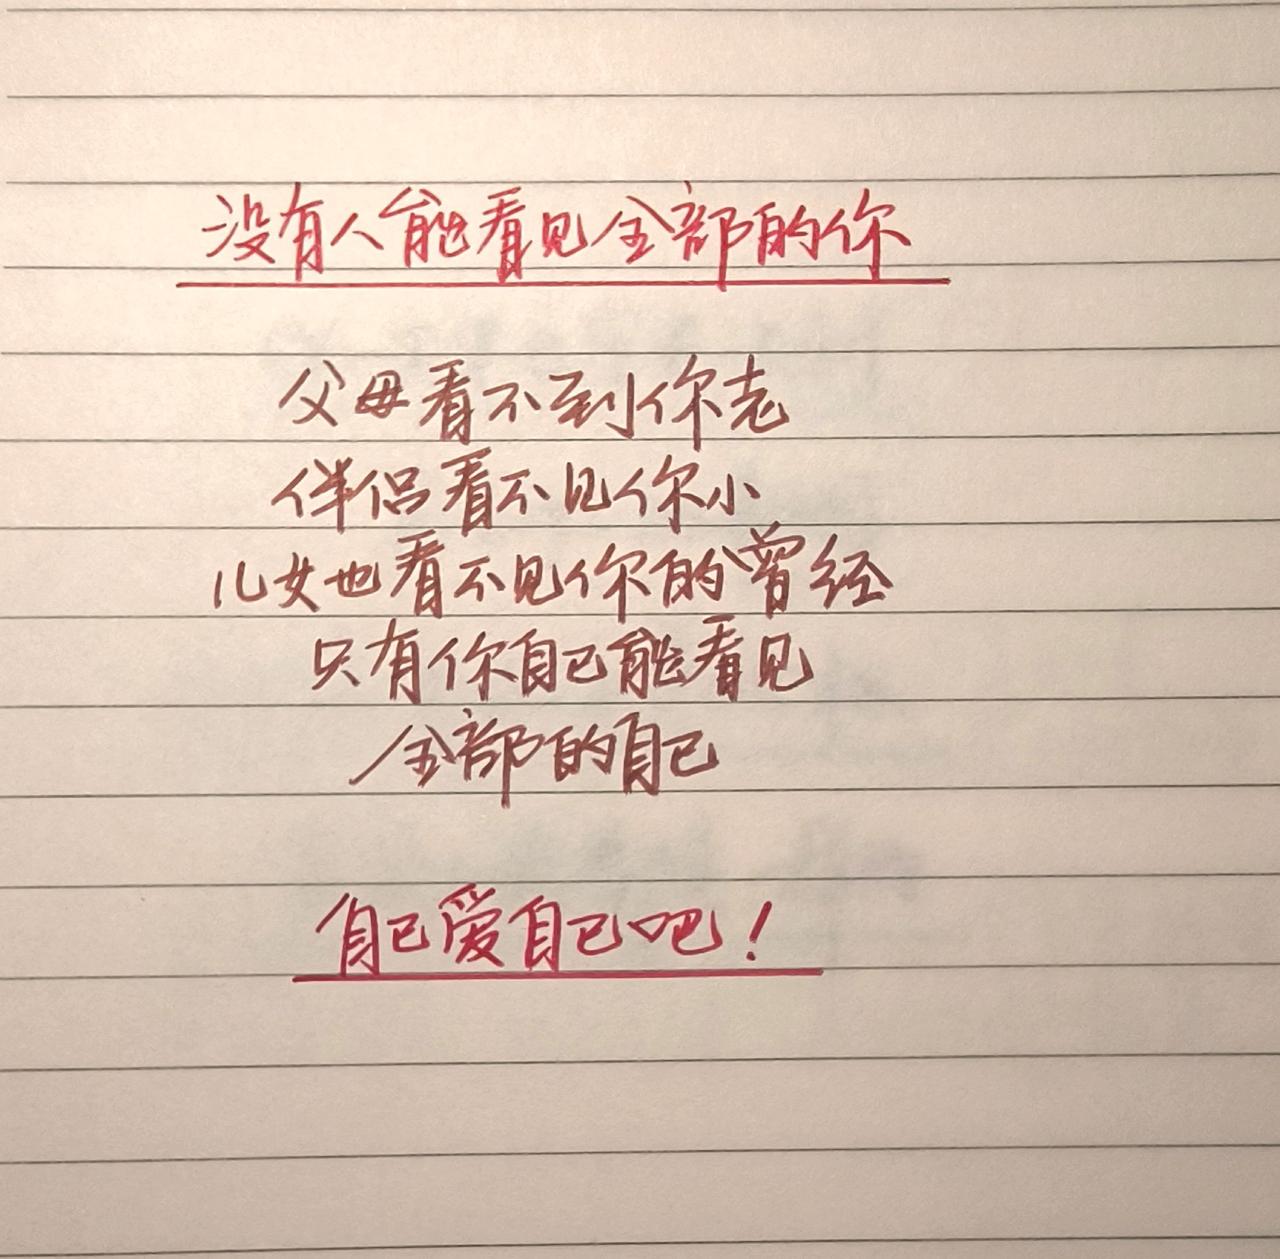 没有人能看见全部的你
父母看不到你老
伴侣看不见你小
儿女也看不见你的曾经
只有你自己能看见
全部的自己
自己爱自己吧！